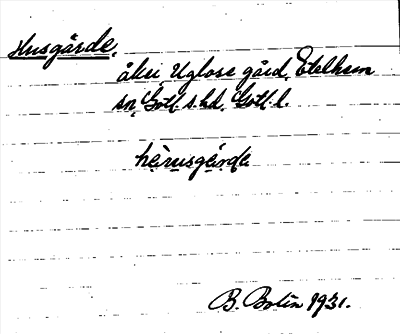 Husgärde,
åker Uglose gård, Etelhem
sn, Gotl. s. hd, Gotl. l.
hèrusgèrde
B. Bolin 1931.